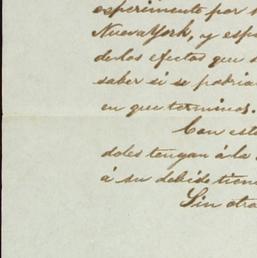 esperimento por
Nueva York, y esp
de los efectos que
saber si se podria
en que terminos.
Con est
doles tengan á la
á su debido tiem
Sin otro